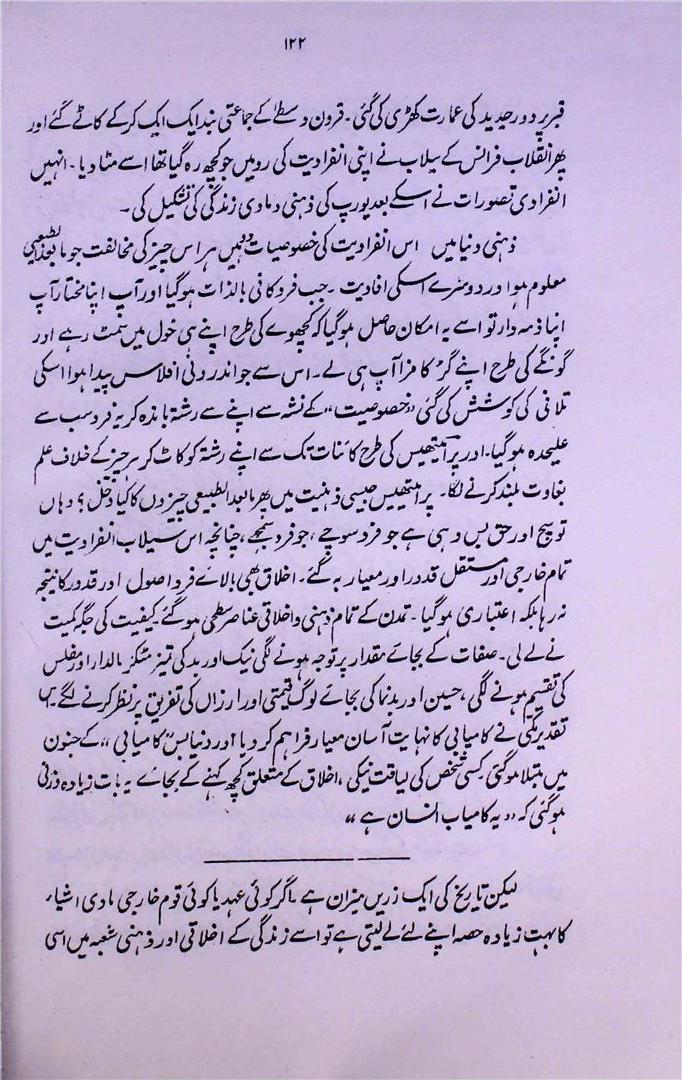 ۱۲۲
قبر پر دور جدید کی عمارت کھڑی کی گئی۔ قرون وسطےٰ کے جماعتی بند ایک ایک کرکے کاٹے گئے اور
پھر انقلاب فرانس کے سیلاب نے اپنی انفرادیت کی رو میں جو کچھ رہ گیا تھا اسے مٹا دیا۔ انہیں
انفرادی تصورات نے اسکے بعد یورپ کی ذہنی و مادی زندگی کی تشکیل کی۔
ذہنی دنیا میں اس انفرادیت کی خصوصیات دو ہیں ہر اس چیز کی مخالفت جو مابعد الطبعیی
معلوم ہو اور دوسرے اسکی افادیت۔ جب فرد کافی بالذات ہوگیا اور آپ اپنا مختار آپ
اپنا ذمہ دار تو اسے یہ امکان حاصل ہوگیا کہ کچھوے کی طرح اپنے ہی خول میں سمٹ رہے اور
گونگے کی طرح اپنے گڑ کا مزا آپ ہی لے۔ اس سے جو اندرونی افلاس پیدا ہوا اسکی
تلافی کی کوشش کی گئی ”خصوصیت“ کے نشہ سے اپنے سے رشتہ باندہ کر یہ فرد سب سے
علیحدہ ہوگیا۔ اور پرامیتھیس کی طرح کائنات تک سے اپنے رشتہ کو کاٹ کر ہر چیز کے خلاف علم
بغاوت بلند کرنے لگا۔ پرامیتھیس جیسی ذہنیت میں پھر مابعد الطبیعی چیزوں کا کیا دخل؟ وہاں
تو سچ اور حق بس وہی ہے جو فرد سوچے، جو فرد سمجھے، چنانچہ اس سیلاب انفرادیت میں
تمام خارجی اور مستقل قدر اور معیار بہ گئے۔ اخلاق بھی بالائے فرد اصول اور قدر کا نتیجہ
نہ رہا بلکہ اعتباری ہوگیا۔ تمدن کے تمام ذہنی و اخلاقی عناصر سطحی ہوگئے۔ کیفیت کی جگہ کمیت
نے لے لی۔ صفات کے بجائے مقدار پر توجہ ہونے لگی نیک اور بد کی تمیز مٹکر مالدار اور مفلس
کی تقسیم ہونے لگی، حسین اور بدنما کی بجائے لوگ قیمتی اور ارزاں کی تفریق پر نظر کرنے لگے۔
تقدیر یکی نے کامیابی کا نہایت آسان معیار فراہم کر دیا اور دنیا بس ”کامیابی“ کے جنون
میں مبتلا ہوگئی کسی شخص کی لیاقت نیکی، اخلاق کے متعلق کچھ کہنے کے بجائے یہ بات زیادہ وزنی
ہوگئی کہ ”یہ کامیاب انسان ہے“
لیکن تاریخ کی ایک زریں میزان ہے۔ اگر کوئی عہد یا کوئی قوم خارجی مادی اشیاء
کا بہت زیادہ حصہ اپنے لئے لے لیتی ہے تو اسے زندگی کے اخلاقی اور ذہنی شعبہ میں اسی